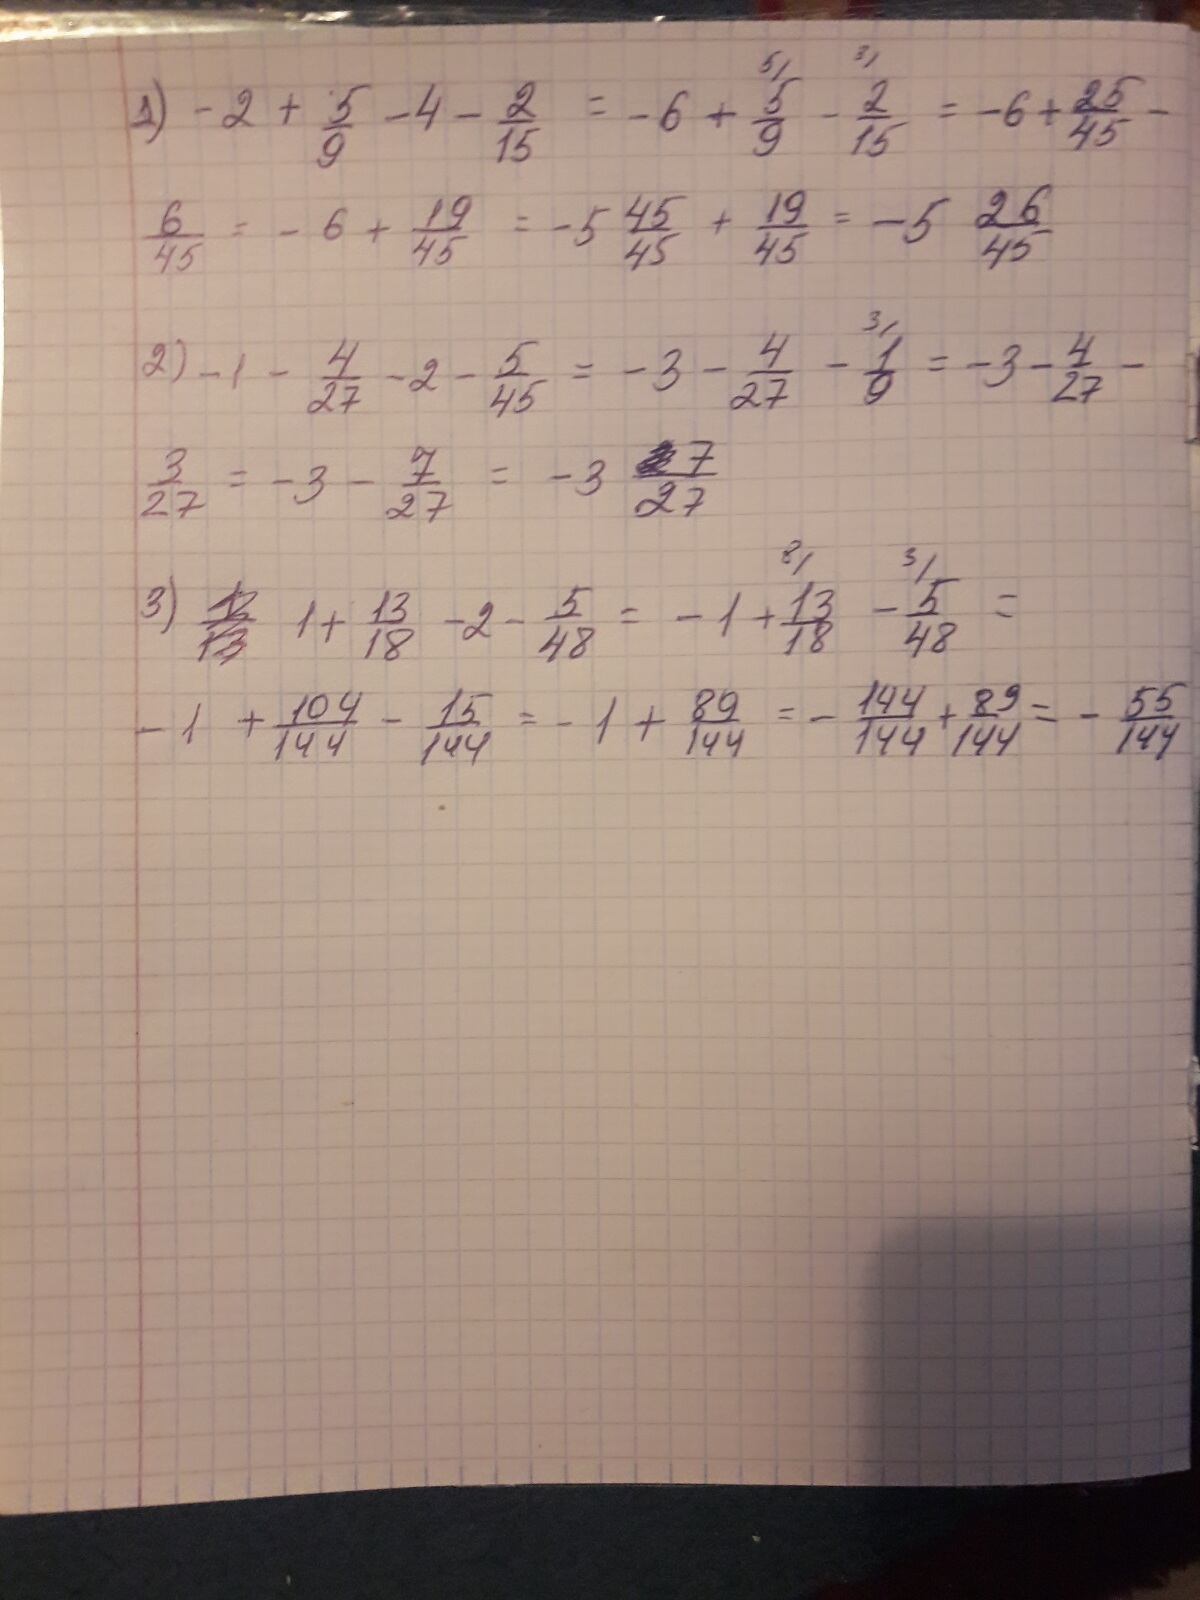 1) -2 + 5/9 - 4 - 2/15 = -6 + 5/9 - 2/15 = -6 + 25/45 -
6/45 = -6 + 19/45 = -5 45/45 + 19/45 = -5 26/45
2) -1 - 4/27 - 2 - 5/45 = -3 - 4/27 - 1/9 = -3 - 4/27 -
3/27 = -3 - 7/27 = -3 7/27
3) 1 + 13/18 - 2 - 5/48 = -1 + 13/18 - 5/48 =
-1 + 104/144 - 15/144 = -1 + 89/144 = -144/144 + 89/144 = -55/144